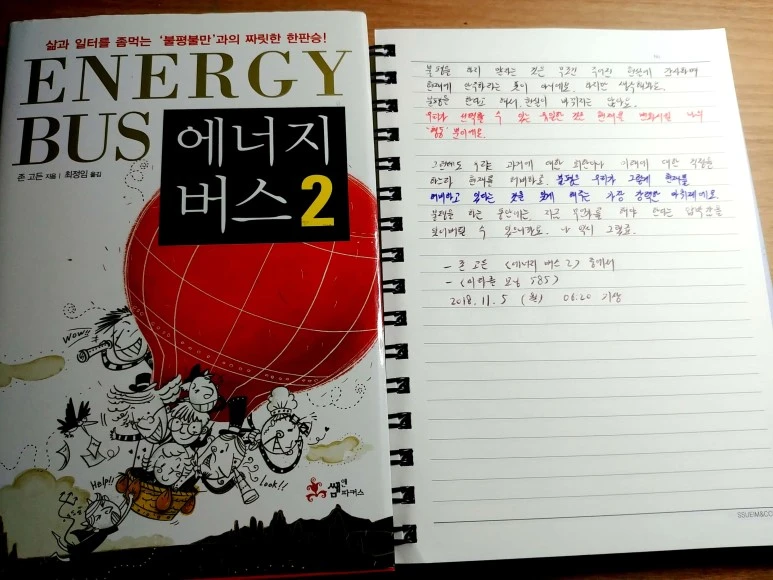 삶과 일터를 좀먹는 '불평불만'과의 짜릿한 한판승!
ENERGY
BUS
에너지
버스2
존 고든 지음 | 최정임 옮김
WOW!!
Help!!
Look!!
쌤앤
파커스
불평을 하지 말라는 것은 무조건 주어진 현실에 감사하며
현재에 안주하라는 뜻이 아니에요. 하지만 생각해봐요.
불평을 한다고 해서 현실이 바뀌지는 않아요.
우리가 선택할 수 있는 유일한 것은 현재를 변화시킬 나의
'행동' 뿐이에요.
그런데도 우리는 과거에 대한 후회나 미래에 대한 걱정을
하느라 현재를 낭비하고, 불평은 우리가 그렇게 현재를
낭비하고 있다는 것을 잊게 해주는 가장 강력한 마취제예요.
불평을 하는 동안에는 지금 무언가를 해야 한다는 압박감을
잊어버릴 수 있으니까요. 나 역시 그랬죠.
- 존 고든 <에너지 버스 2> 중에서
- <이 아침 585>
2018. 11. 5 (월) 06:20 기상
SSUEIM&CO